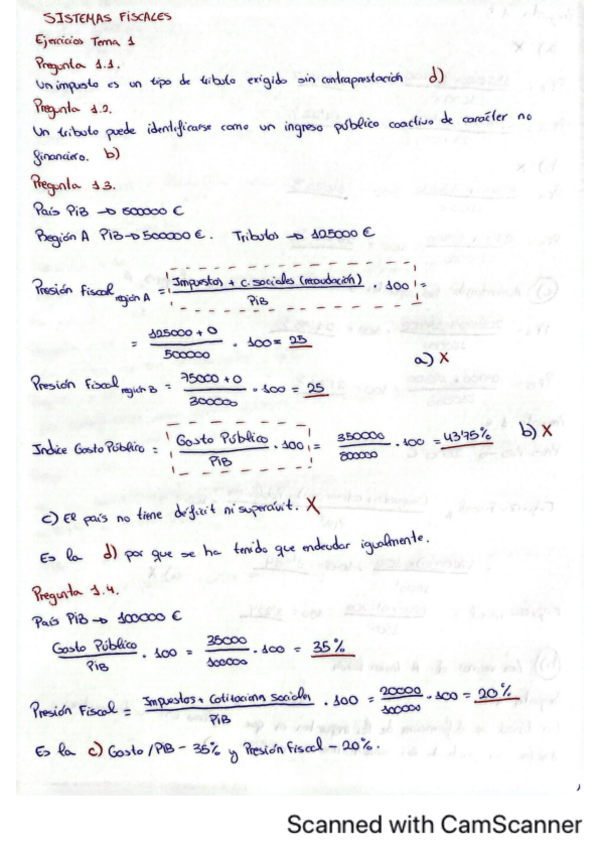 SISTEMAS FISCALES
Ejercicios Tema 1
Pregunta 1.1.
Un impuesto es un tipo de tributo exigido sin contraprestación d)
Pregunta 1.2.
Un tributo puede identificarse como un ingreso público coactivo de carácter no
financiero. b)
Pregunta 1.3.
País PiB → 800000 €
Región A PiB → 500000 €. Tributos → 125000 €
Presión Fiscal región A = Impuestos + c. sociales (recaudación) / PiB · 100 =
= 125000 + 0 / 500000 · 100 = 25
a) X
Presión Fiscal región B = 75000 + 0 / 300000 · 100 = 25
Indice Gasto Público = Gasto Público / PiB · 100 = 350000 / 800000 · 100 = 43'75% b) X
c) El país no tiene déficit ni superávit. X
Es la d) por que se ha tenido que endeudar igualmente.
Pregunta 1.4.
País PiB → 100000 €
Gasto Público / PiB · 100 = 35000 / 100000 · 100 = 35%
Presión Fiscal = Impuestos + Cotizaciones sociales / PiB · 100 = 20000 / 100000 · 100 = 20%
Es la c) Gasto/PiB - 35% y Presión Fiscal - 20%.
Scanned with CamScanner